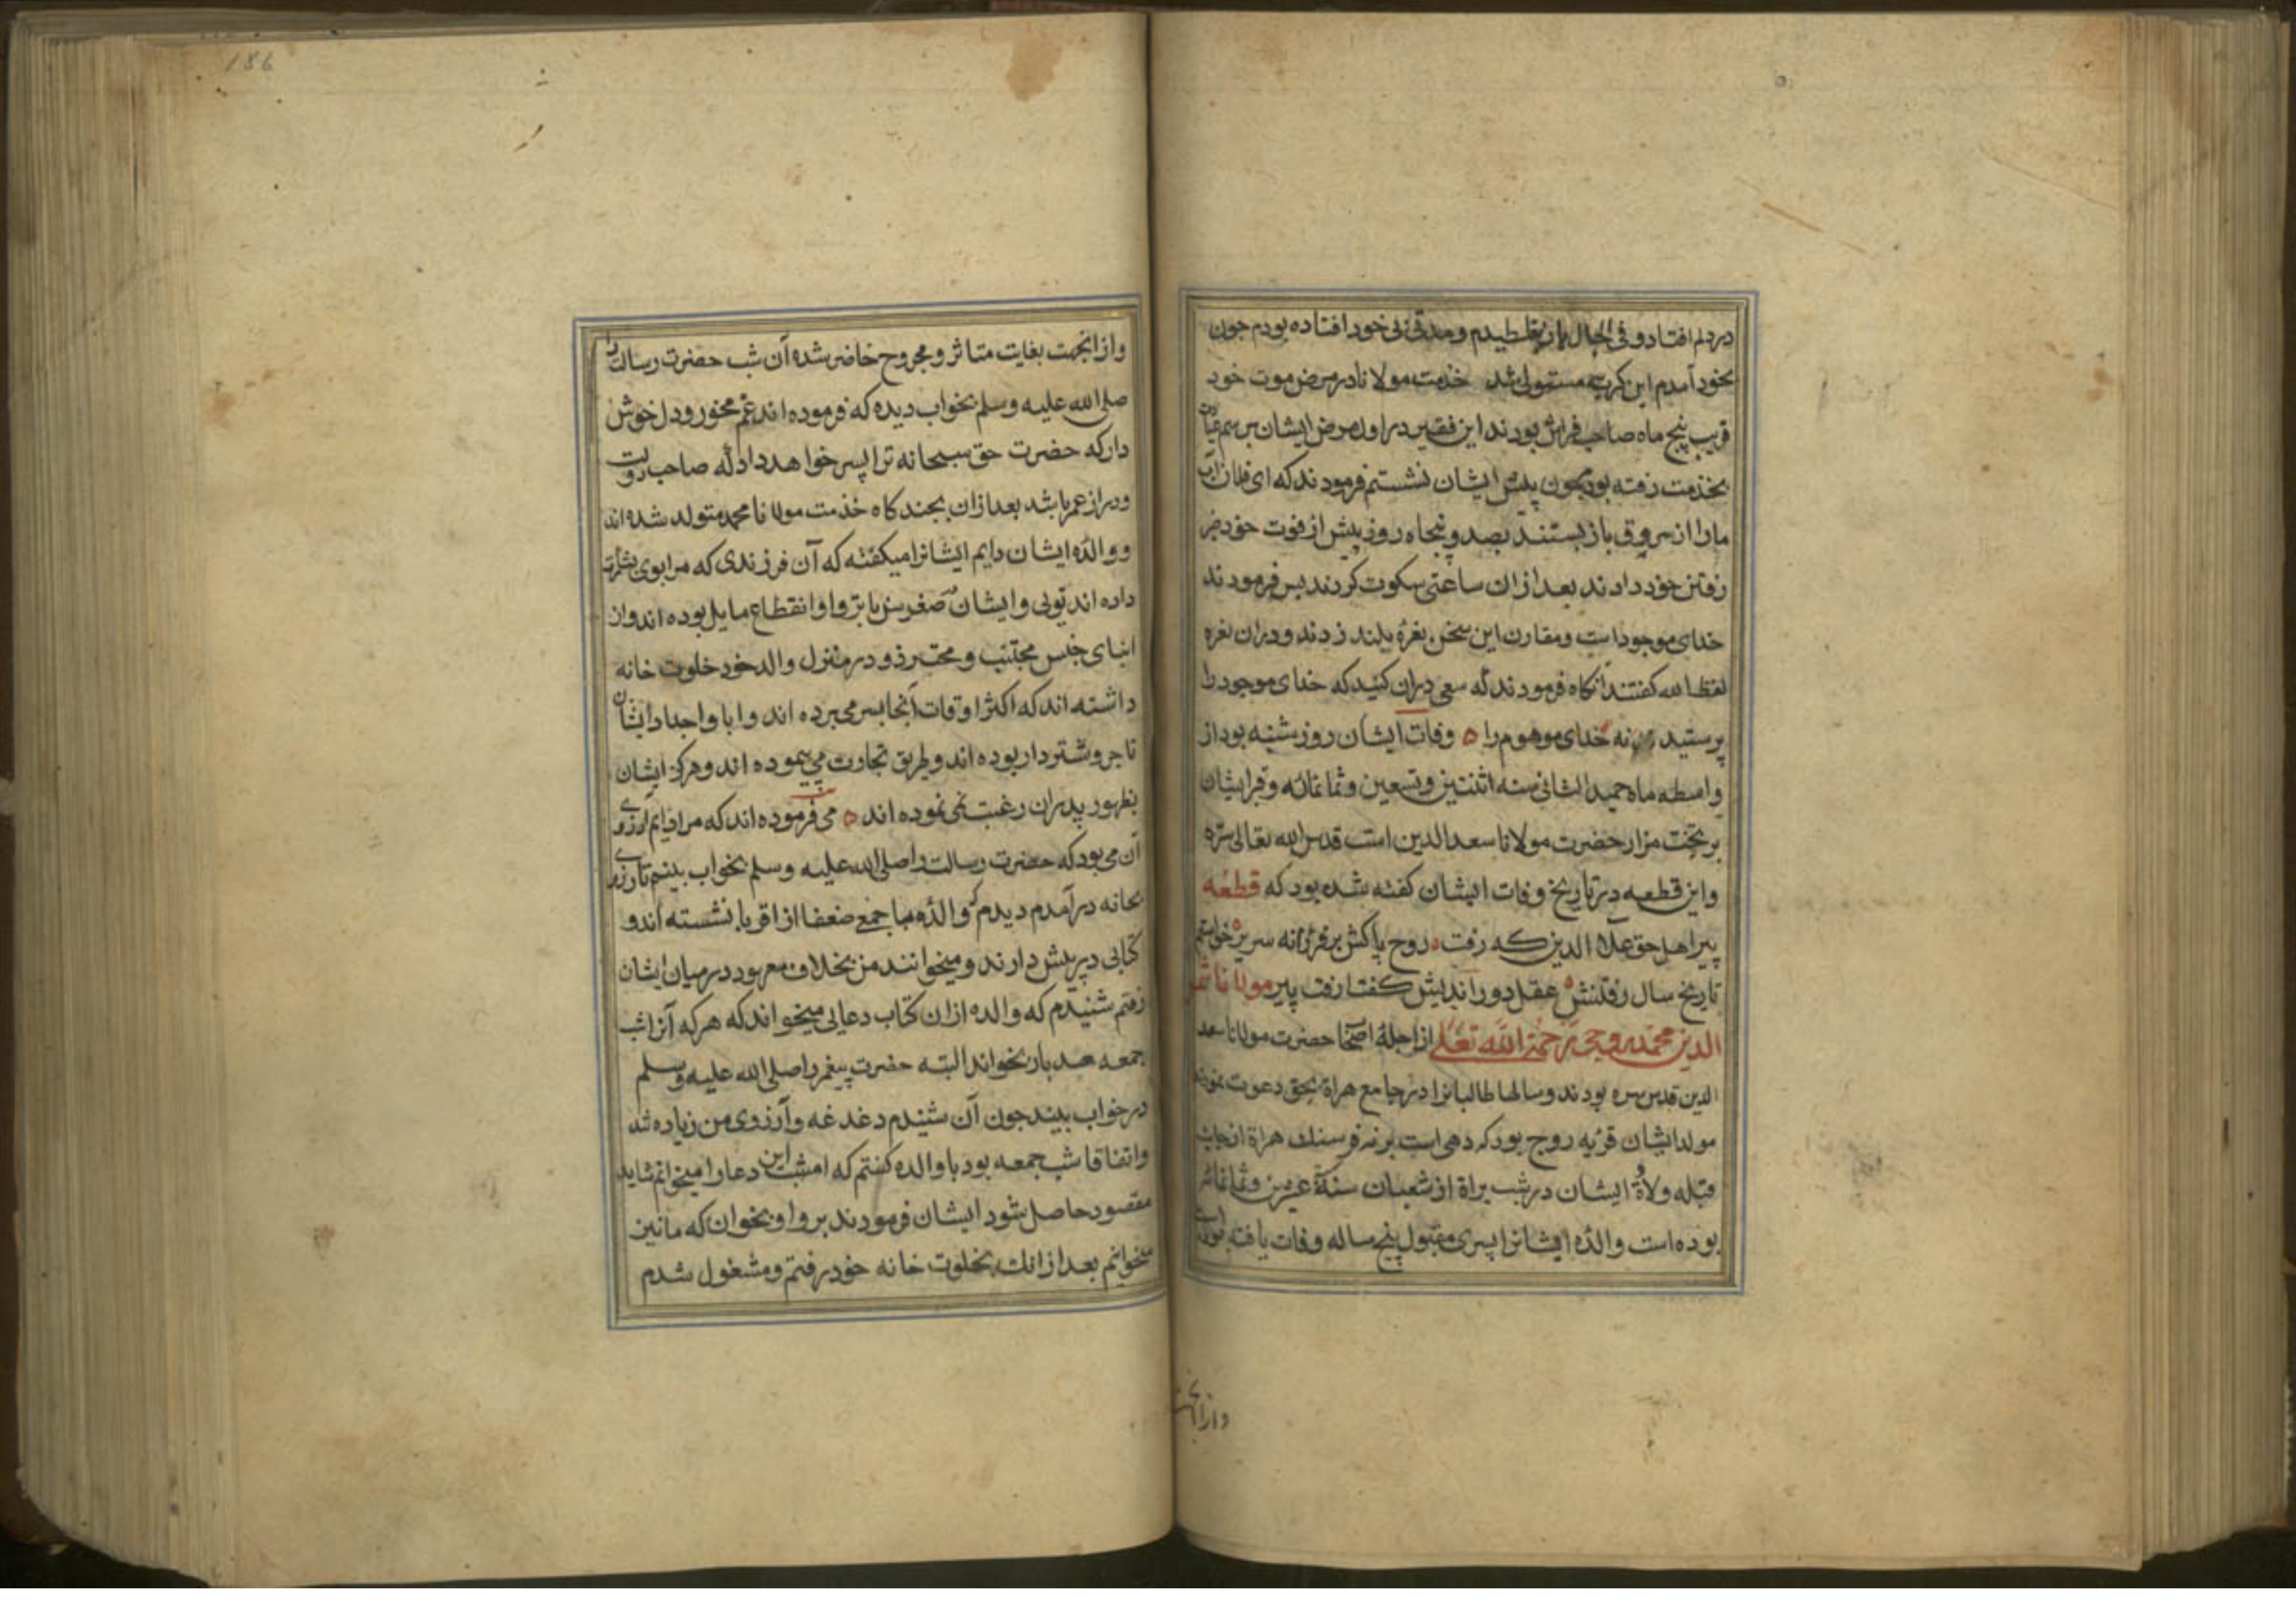 در دلم افتاد و فی الحال باز بغلطیدم و مدتی بی خود افتاده بودم جون
بخود آمدم این کریه مستولی شد خذمت مولانا در مرض موت خود
قریب پنج ماه صاحب فراش بودند این فقیر در اول مرض ایشان برسم عیادت
بخذمت رفته بود جون پیش ایشان نشستم فرمودند که ای فلان آب
مارا از سر وق باز بستند بصد و پنجاه روز پیش از فوت خود خبر
رفتن خود دادند بعد ازان ساعتی سکوت کردند بس فرمودند
خدای موجود است و مقارن این سخن نغرهٔ بلند زدند و دران نغره
لفظ الله کفتند آنکاه فرمودند که سعی دران کنید که خدای موجود را
پرستید نه خدای موهوم را ه وفات ایشان روز شنبه بود از
واسطه ماه جمید الثانی سنه اثنتین و تسعین و ثمانمائه و قبر ایشان
بر تخت مزار حضرت مولانا سعد الدین است قدس الله تعالی سره
واین قطعه در تاریخ وفات ایشان کفته شده بود که قطعه
پیر اهل حق علا الدین که رفت روح پاکش بر فراز نه سریر خواستم
تاریخ سال رفتنش عقل دور اندیش کفتا رفت پیر مولانا شمس
الدین محمد روجی رحمة الله تعالی از اجلهٔ اصحا حضرت مولانا سعد
الدین قدس سره بودند و سالها طالبانرا در جامع هراة بحق دعوت نمودند
مولد ایشان قریه روج بود که دهی است بر نه فرسنك هراة از جانب
قبله ولادة ایشان در شب براة از شعبان سنة عشرین و ثمانمائه
بوده است والدهٔ ایشانرا پسری مقبول پنج ساله وفات یافته بوده است
وازانجهت
186
وازانجهت بغایت متاثر و مجروح خاضر شده آن شب حضرت رسالت را
صلی الله علیه وسلم بخواب دیده که فرموده اند غم مخور و دل خوش
دار که حضرت حق سبحانه ترا پسر خواهد داد که صاحب دولت
و دراز عمر باشد بعد ازان بجند کاه خذمت مولانا محمد متولد شده اند
و والدهٔ ایشان دایم ایشانرا میکفته که آن فرزندی که مرا بوی بشارت
داده اند تویی و ایشان در صغر سن با نزوا و انقطاع مایل بوده اند و از
ابنای جنس مجتنب و محترز و در منزل والد خود خلوت خانه
داشته اند که اکثر اوقات آنجا بسر می برده اند و ابا و اجداد ایشان
تاجر و شتردار بوده اند و طریق تجاوت می پیموده اند و هرکز ایشان
بظهور پدران رغبت نمی نموده اند ه می فرموده اند که مرا دایم آرزوی
آن می بود که حضرت رسالت را صلی الله علیه وسلم بخواب بینم تا روزی
بخانه در آمدم دیدم که والده با جمعی ضعفا از اقربا نشسته اند و
کتابی در پیش دارند و میخوانند من بخلاف معهود در میان ایشان
رفتم شنیدم که والده ازان کتاب دعایی میخواند که هر که آنرا شب
جمعه صد بار بخواند البته حضرت پیغمر را صلی الله علیه وسلم
در خواب بیند جون آن شنیدم دغدغه و آرزوی من زیاده شد
واتفاقا شب جمعه بود با والده کفتم که امشب این دعا را میخوانم شاید
مقصود حاصل شود ایشان فرمودند برو او بخوان که ما نیز
میخوانیم بعد ازانك بخلوت خانه خود رفتم و مشغول شدم